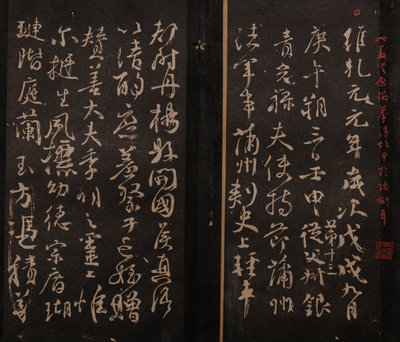 維乾元元年歲次戊戌九月
庚午朔三日壬申第十三從父叔銀
青光祿夫使持節蒲州
諸軍事蒲州刺史上輕車
都尉丹楊縣開國侯真卿
以清酌庶羞祭于亡姪贈
贊善大夫季明之靈曰惟
爾挺生夙標幼德宗廟瑚
璉階庭蘭玉方憑積善